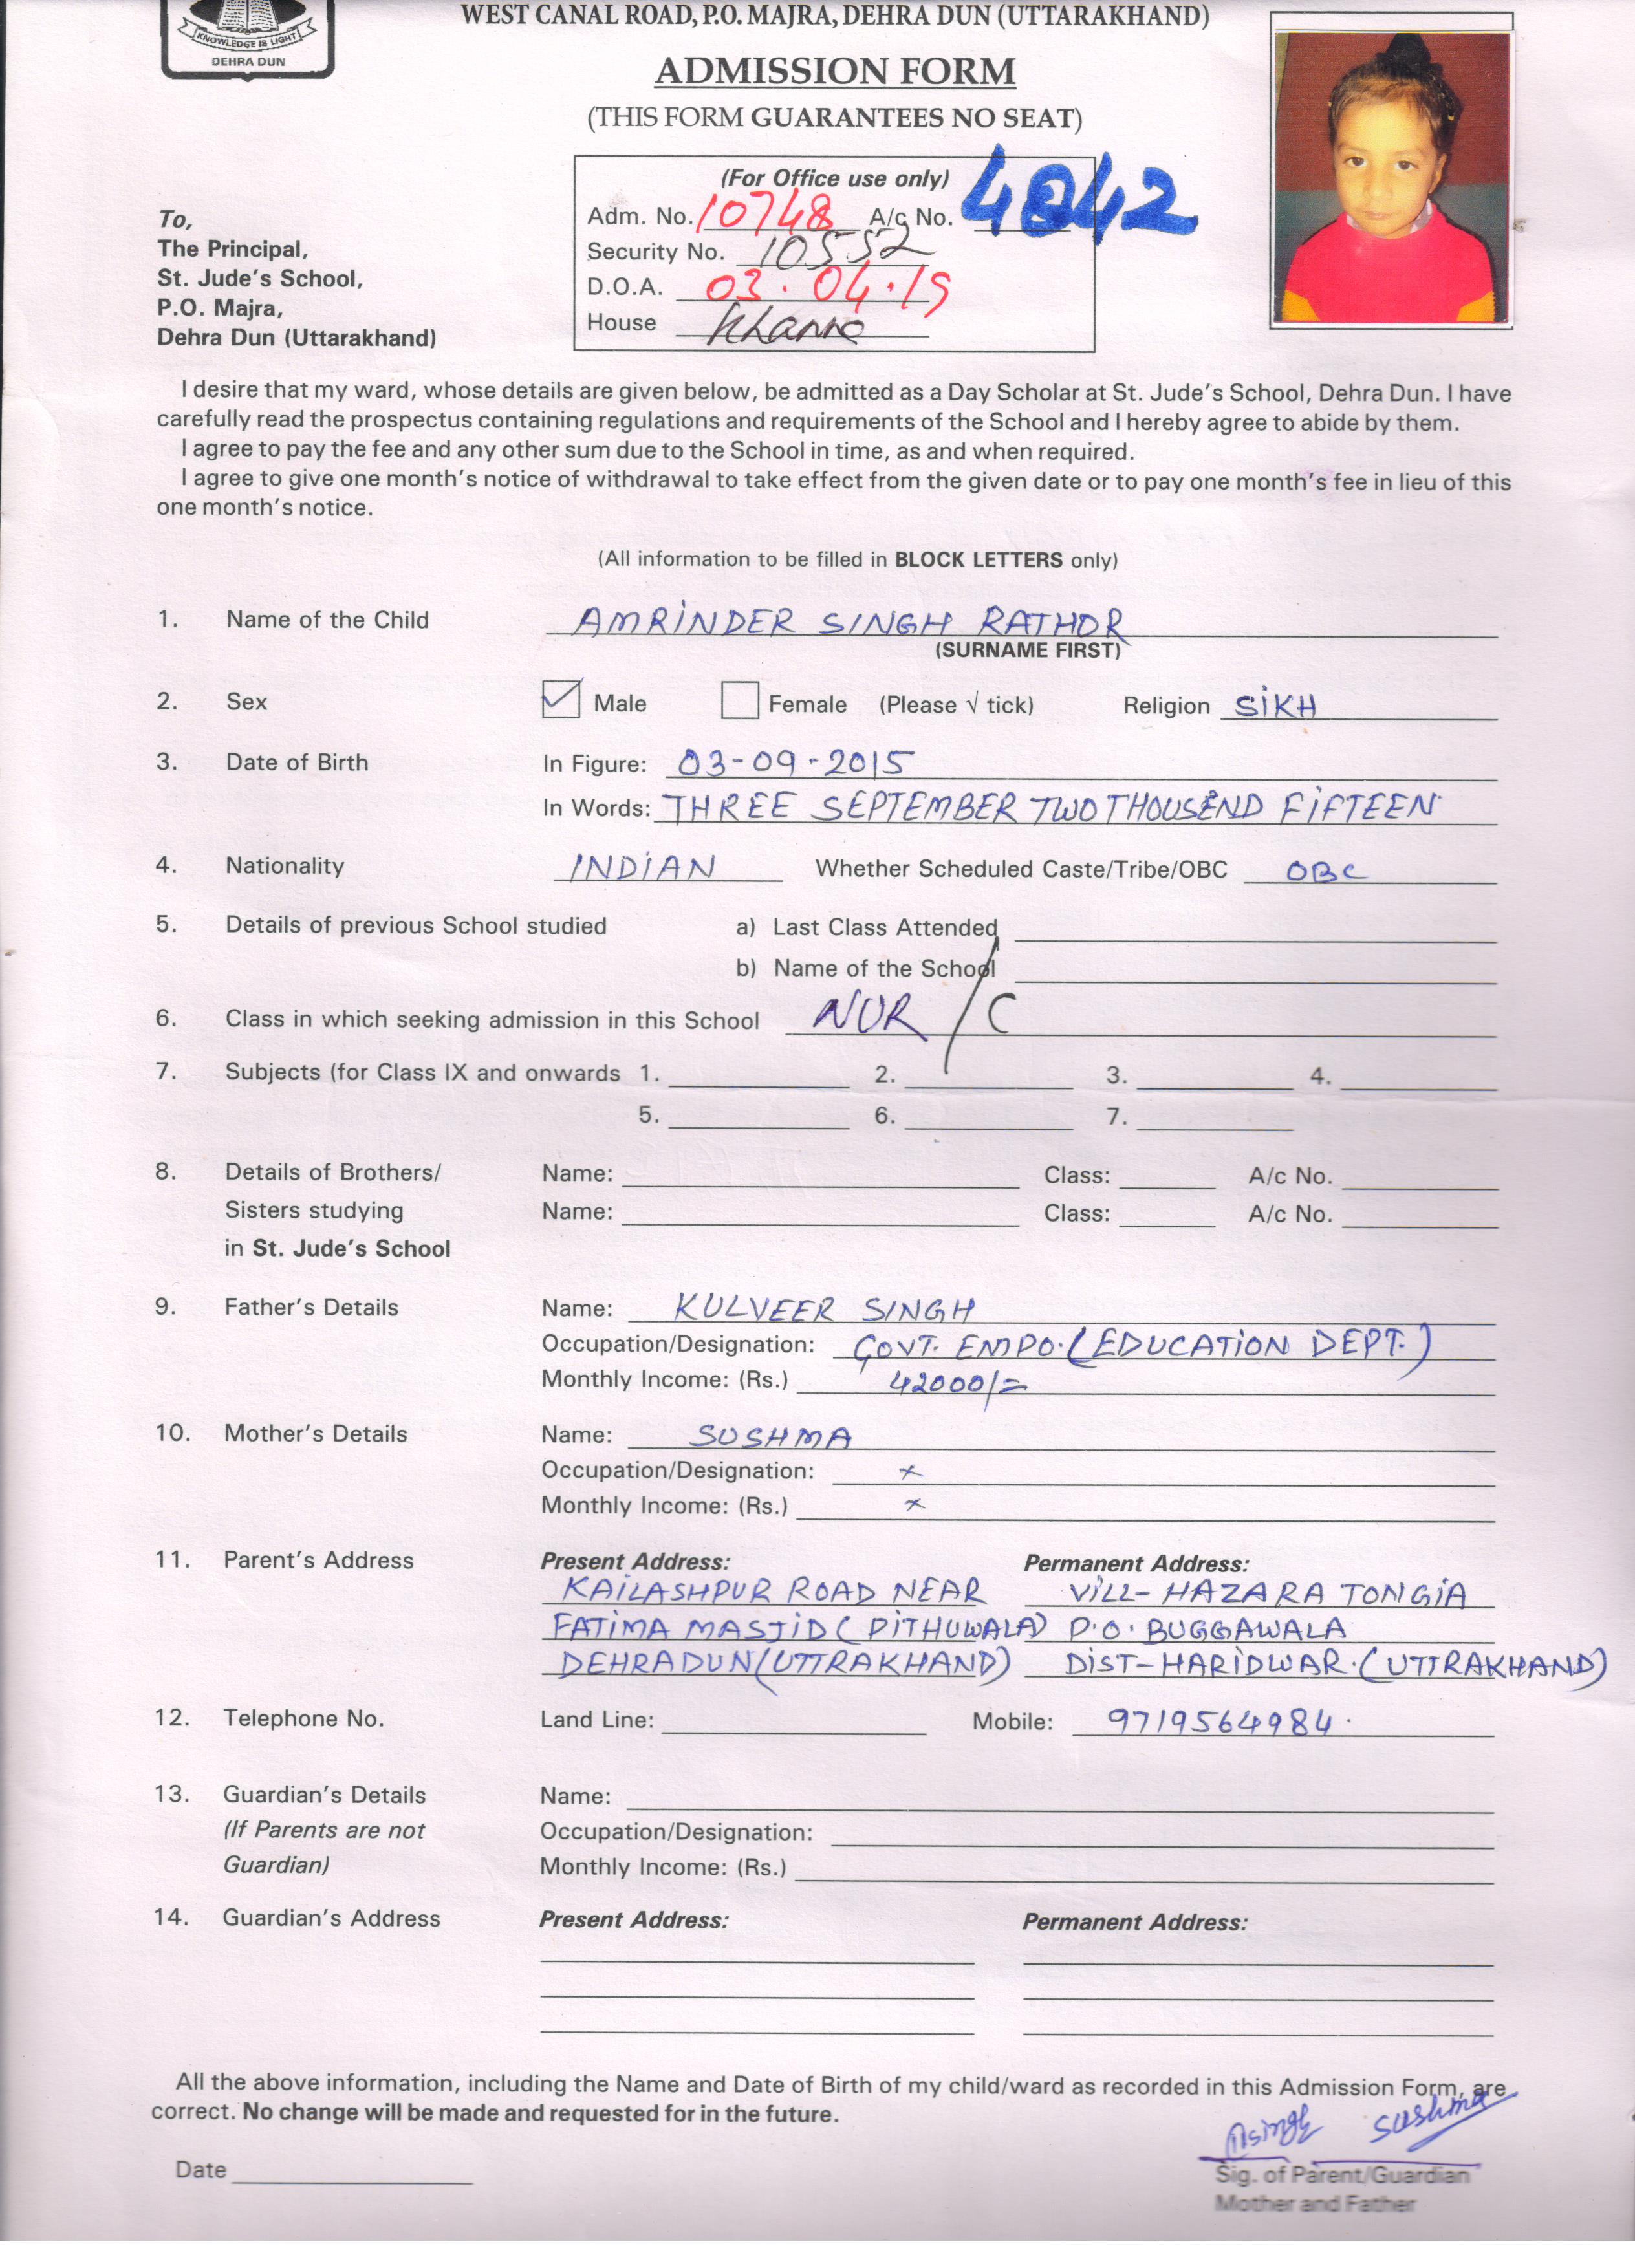 KNOWLEDGE IS LIGHT
DEHRA DUN
WEST CANAL ROAD, P.O. MAJRA, DEHRA DUN (UTTARAKHAND)
ADMISSION FORM
(THIS FORM GUARANTEES NO SEAT)
(For Office use only)
Adm. No. 10748 A/c No. 4842
Security No. 10552
D.O.A. 03.04.19
House Khanna
To,
The Principal,
St. Jude's School,
P.O. Majra,
Dehra Dun (Uttarakhand)
I desire that my ward, whose details are given below, be admitted as a Day Scholar at St. Jude's School, Dehra Dun. I have
carefully read the prospectus containing regulations and requirements of the School and I hereby agree to abide by them.
I agree to pay the fee and any other sum due to the School in time, as and when required.
I agree to give one month's notice of withdrawal to take effect from the given date or to pay one month's fee in lieu of this
one month's notice.
(All information to be filled in BLOCK LETTERS only)
1. Name of the Child AMRINDER SINGH RATHOR
(SURNAME FIRST)
2. Sex ✓ Male Female (Please √ tick) Religion SIKH
3. Date of Birth In Figure: 03-09-2015
In Words: THREE SEPTEMBER TWO THOUSEND FIFTEEN
4. Nationality INDIAN Whether Scheduled Caste/Tribe/OBC OBC
5. Details of previous School studied a) Last Class Attended
b) Name of the School
6. Class in which seeking admission in this School NUR / C
7. Subjects (for Class IX and onwards 1. 2. 3. 4.
5. 6. 7.
8. Details of Brothers/ Name: Class: A/c No.
Sisters studying Name: Class: A/c No.
in St. Jude's School
9. Father's Details Name: KULVEER SINGH
Occupation/Designation: GOVT. EMPO. (EDUCATION DEPT.)
Monthly Income: (Rs.) 42000/=
10. Mother's Details Name: SUSHMA
Occupation/Designation: x
Monthly Income: (Rs.) x
11. Parent's Address Present Address: Permanent Address:
KAILASHPUR ROAD NEAR VILL- HAZARA TONGIA
FATIMA MASJID (PITHUWALA) P.O. BUGGAWALA
DEHRADUN (UTTRAKHAND) DIST-HARIDWAR. (UTTRAKHAND)
12. Telephone No. Land Line: Mobile: 9719564984.
13. Guardian's Details Name:
(If Parents are not Occupation/Designation:
Guardian) Monthly Income: (Rs.)
14. Guardian's Address Present Address: Permanent Address:
All the above information, including the Name and Date of Birth of my child/ward as recorded in this Admission Form, are
correct. No change will be made and requested for in the future.
Sushma
Date Sig. of Parent/Guardian
Mother and Father